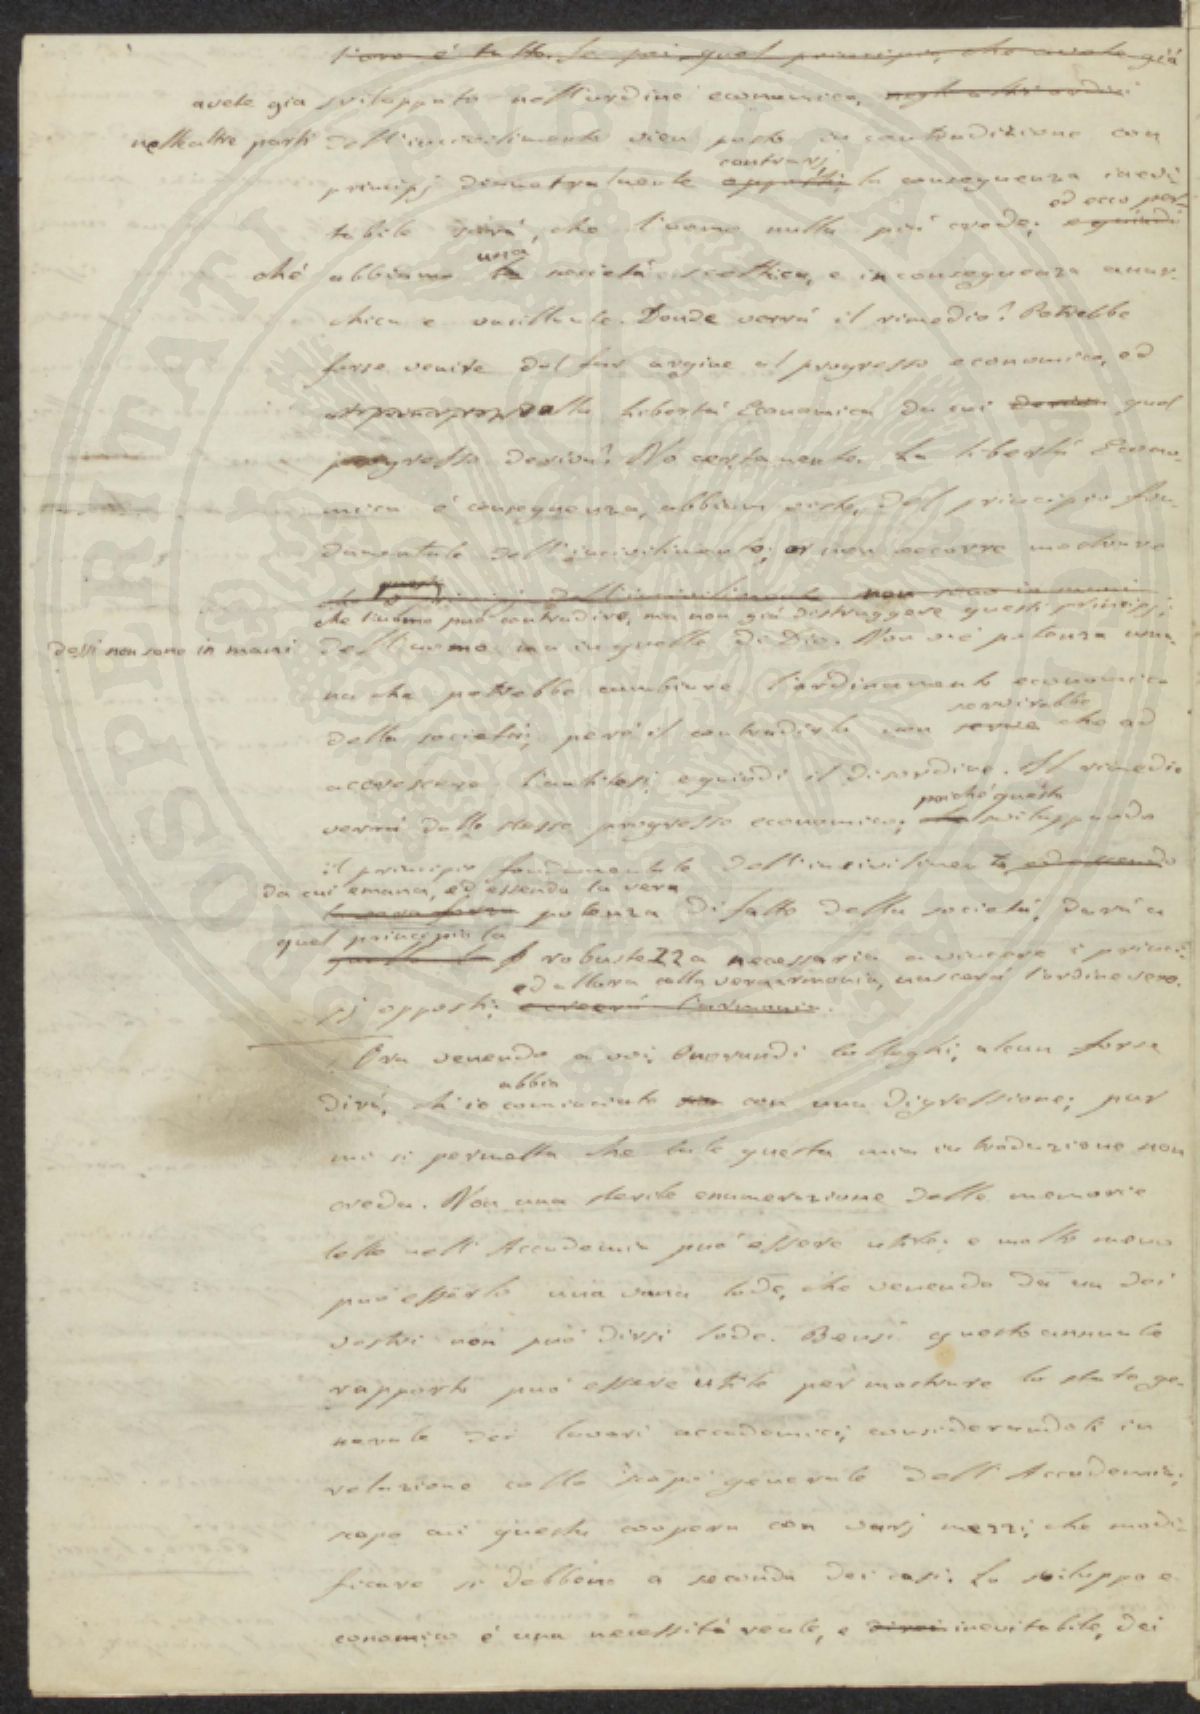 l'oro è tutto. Se poi quel principio, che avete già
avete già sviluppato nell'ordine economico, negli altri ordini
nelle altre parti dell'incivilimento vien posto in contradizione con
contrarj
principj diametralmente opposti, la conseguenza inevi-
ed ecco per-
tabile sarà, che l'uomo nulla più crede; e quindi
una
ché abbiamo la società scettica, e in conseguenza anar-
chica e vacillante. Donde verrà il rimedio? Potrebbe
forse venire dal far argine al progresso economico, ed
alla libertà Economica da cui deriva quel
progresso deriva? No certamente. La libertà Econo-
mica è conseguenza, abbiam visto, del principio fon-
damentale dell'incivilimento; or non occorre mostrare
questi
che i principj dell'incivilimento non sono in mani
che l'uomo può contradire, ma non già distruggere questi principj;
dessi non sono in mani dell'uomo ma in quelle di Dio. Non vi è potenza uma-
na che potrebbe cambiare l'ordinamento economico
servirebbe
della società; però il contradirlo non serve che ad
accrescere l'antitesi, e quindi il disordine. Il rimedio
poiché questo
verrà dallo stesso progresso economico; sviluppando
il principio fondamentale dell'incivilimento, ed essendo
da cui emana, ed essendo la vera
la vera forza potenza di fatto della società, darà a
quel principio la
quello la robustezza necessaria a vincere i princi-
ed allora colla vera armonia, nascerà l'ordine vero.
pj opposti; e creerà l'armonia.
Ora venendo a voi, Onorandi Colleghi, alcun forse
abbia
dirà, ch'io cominciato con una digressione; pur
mi si permetta che tale questa mia introduzione non
creda. Non una sterile enumerazione delle memorie
lette nell'Accademia può essere utile; e molto meno
può esserlo una vana lode, che venendo da un dei
vostri non può dirsi lode. Bensì questo annuale
rapporto può essere utile per mostrare lo stato ge-
nerale dei lavori accademici, considerandoli in
relazione collo scopo generale dell'Accademia;
scopo cui questa coopera con varj mezzi, che modi-
ficare si debbono a seconda dei casi. Lo sviluppo e-
conomico è una necessità reale, e direi inevitabile, dei